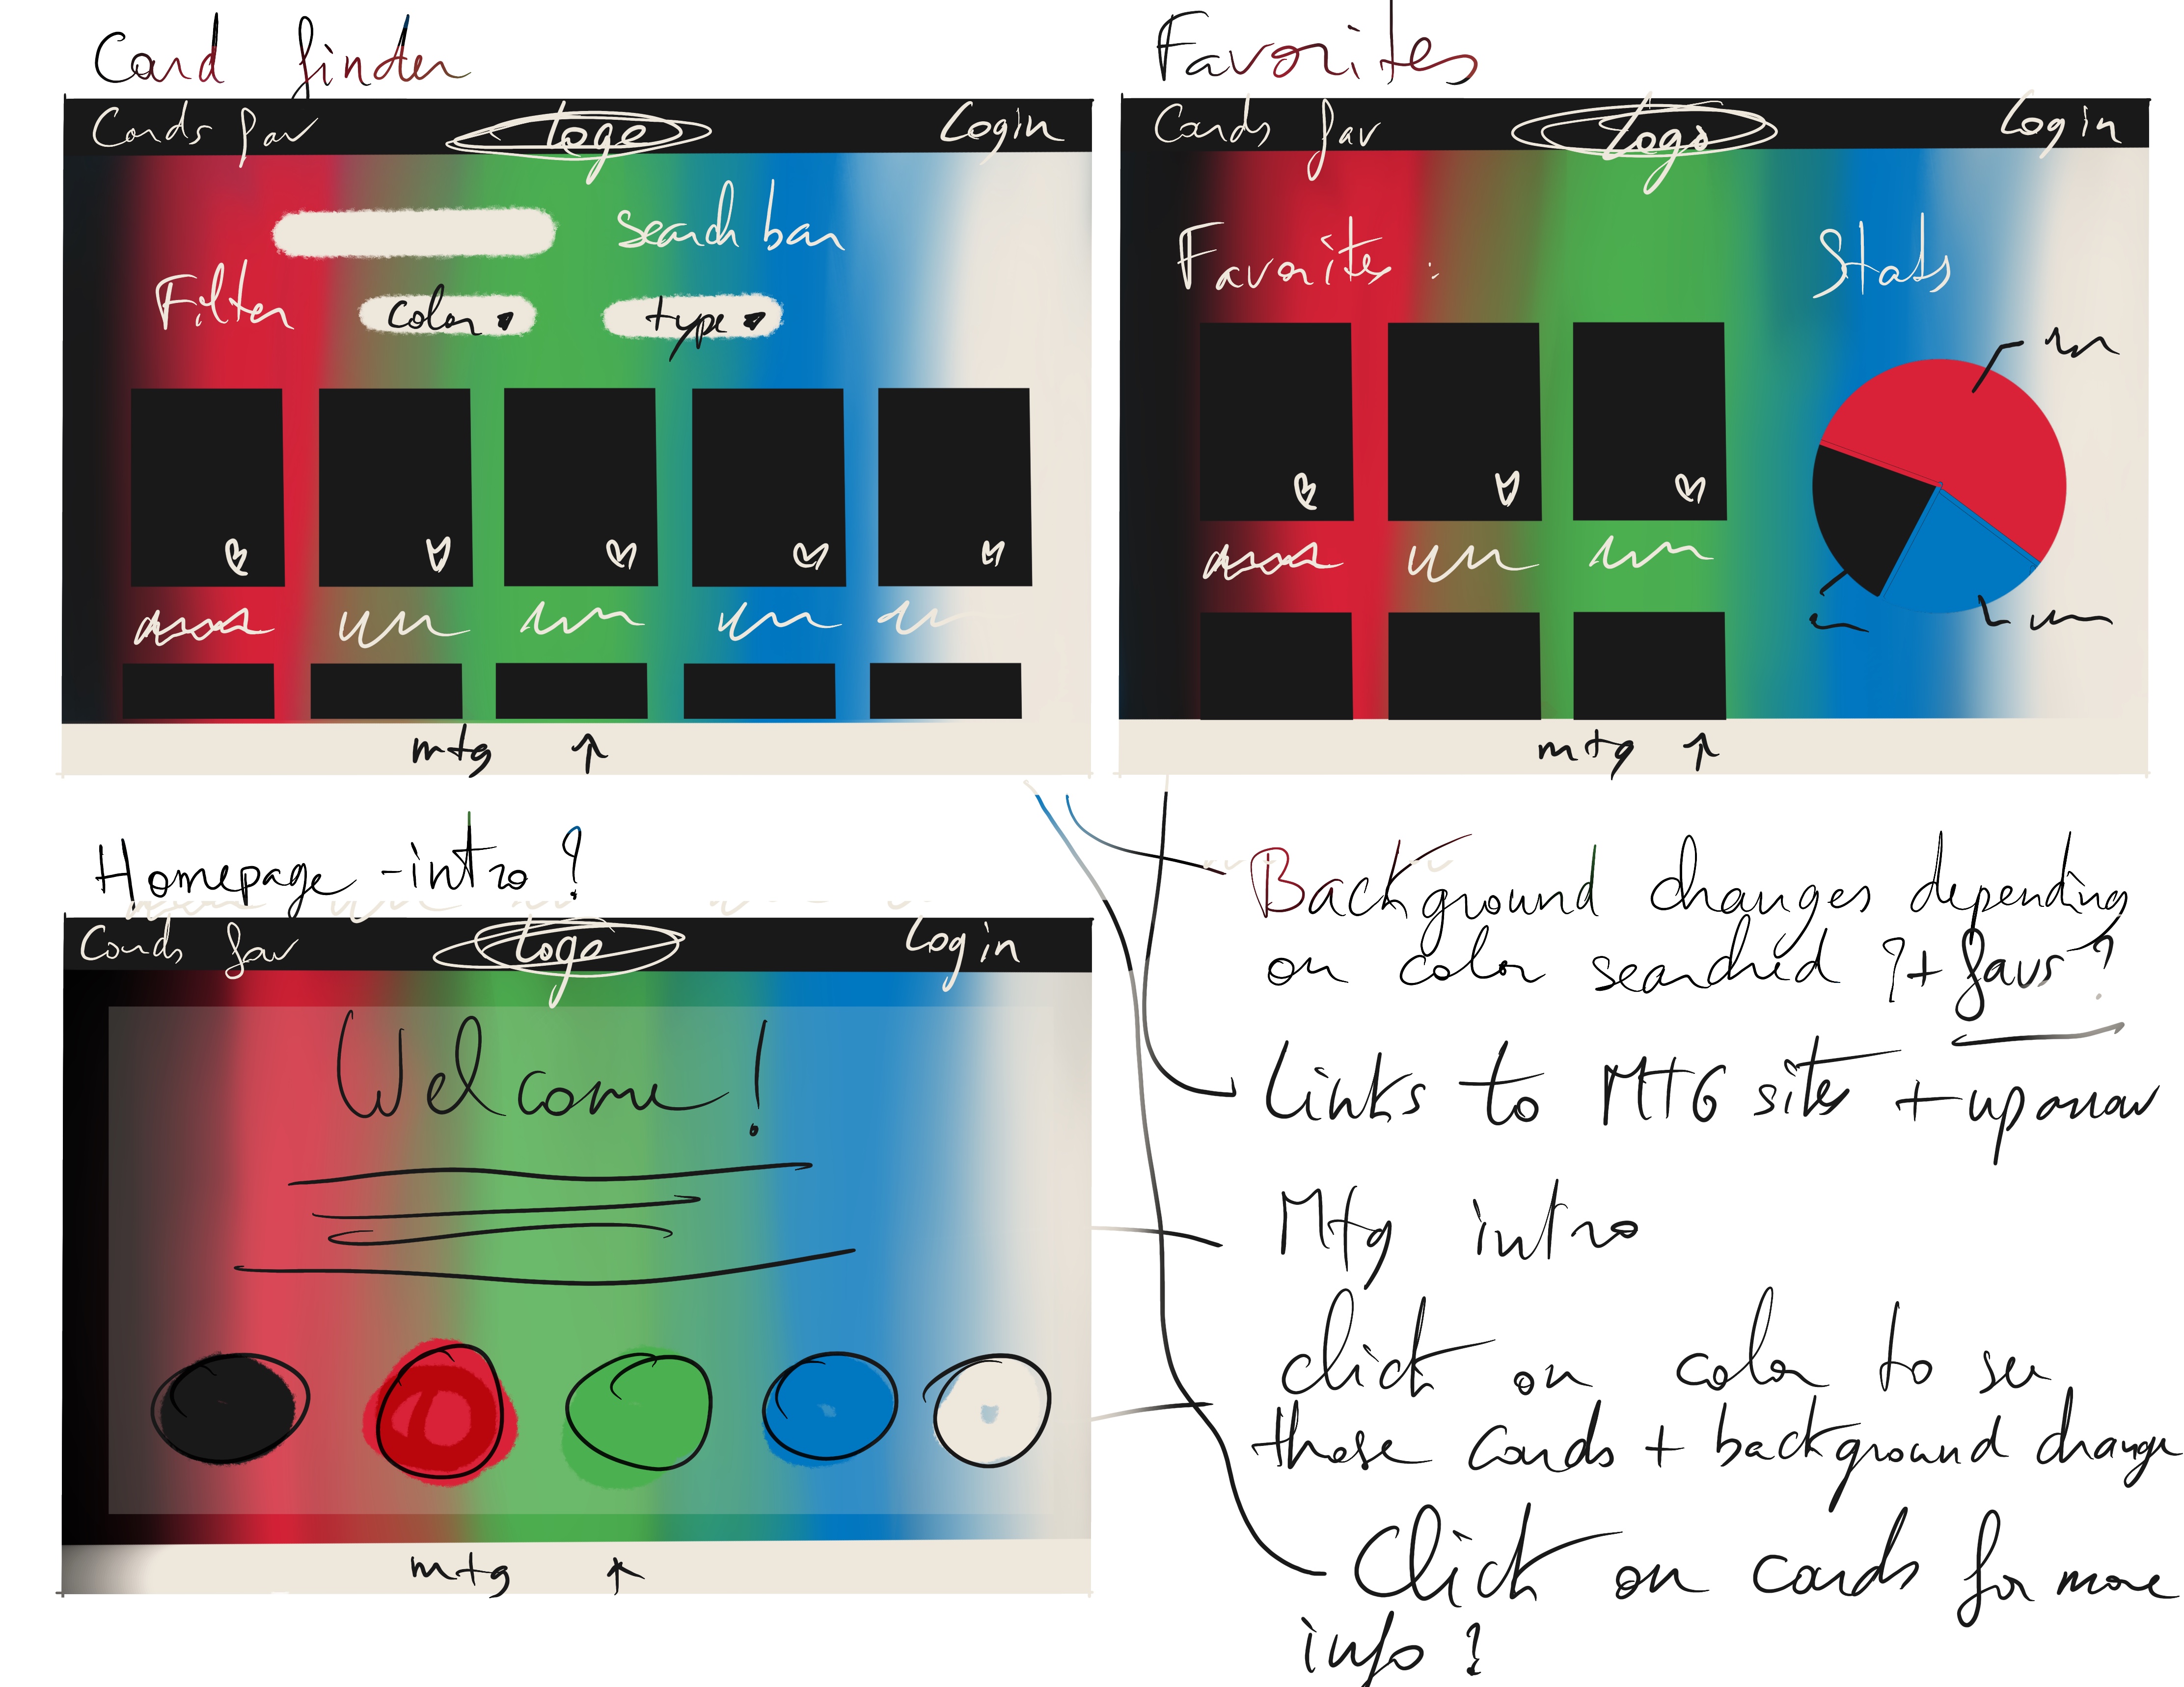 Card finder
Cards fav Logo Login
search bar
Filter color type
mtg ↑
Favorites
Cards fav Logo Login
Favorites : Stats
mtg ↑
Homepage - intro ?
Cards fav Logo Login
Welcome !
mtg ↑
Background changes depending
on color searched ? + favs ?
Links to MTG sites + up arrow
Mtg intro
click on color to see
those cards + background change
Click on cards for more
info ?